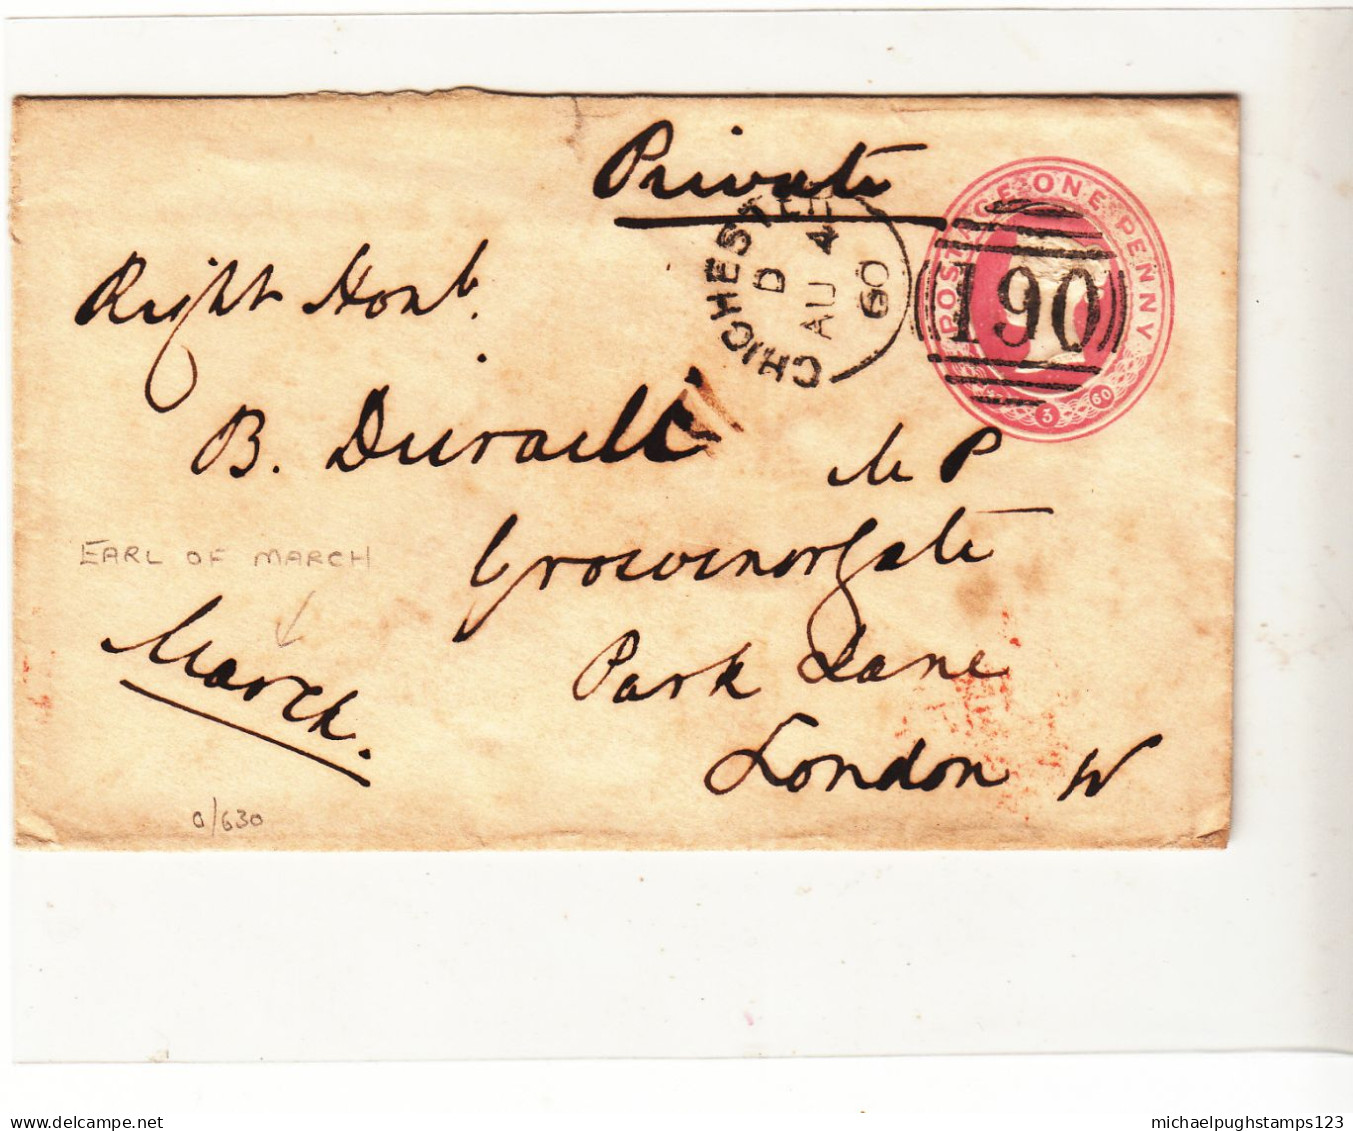 Private
POSTAGE ONE PENNY
CHICHESTER
D
AU 4
60
190
3 60
Right Honb.
B. Disraeli M P
Grosvenorgate
EARL OF MARCH
Park Lane
March.
London W
0/630
Delcampe.net
michaelpughstamps123